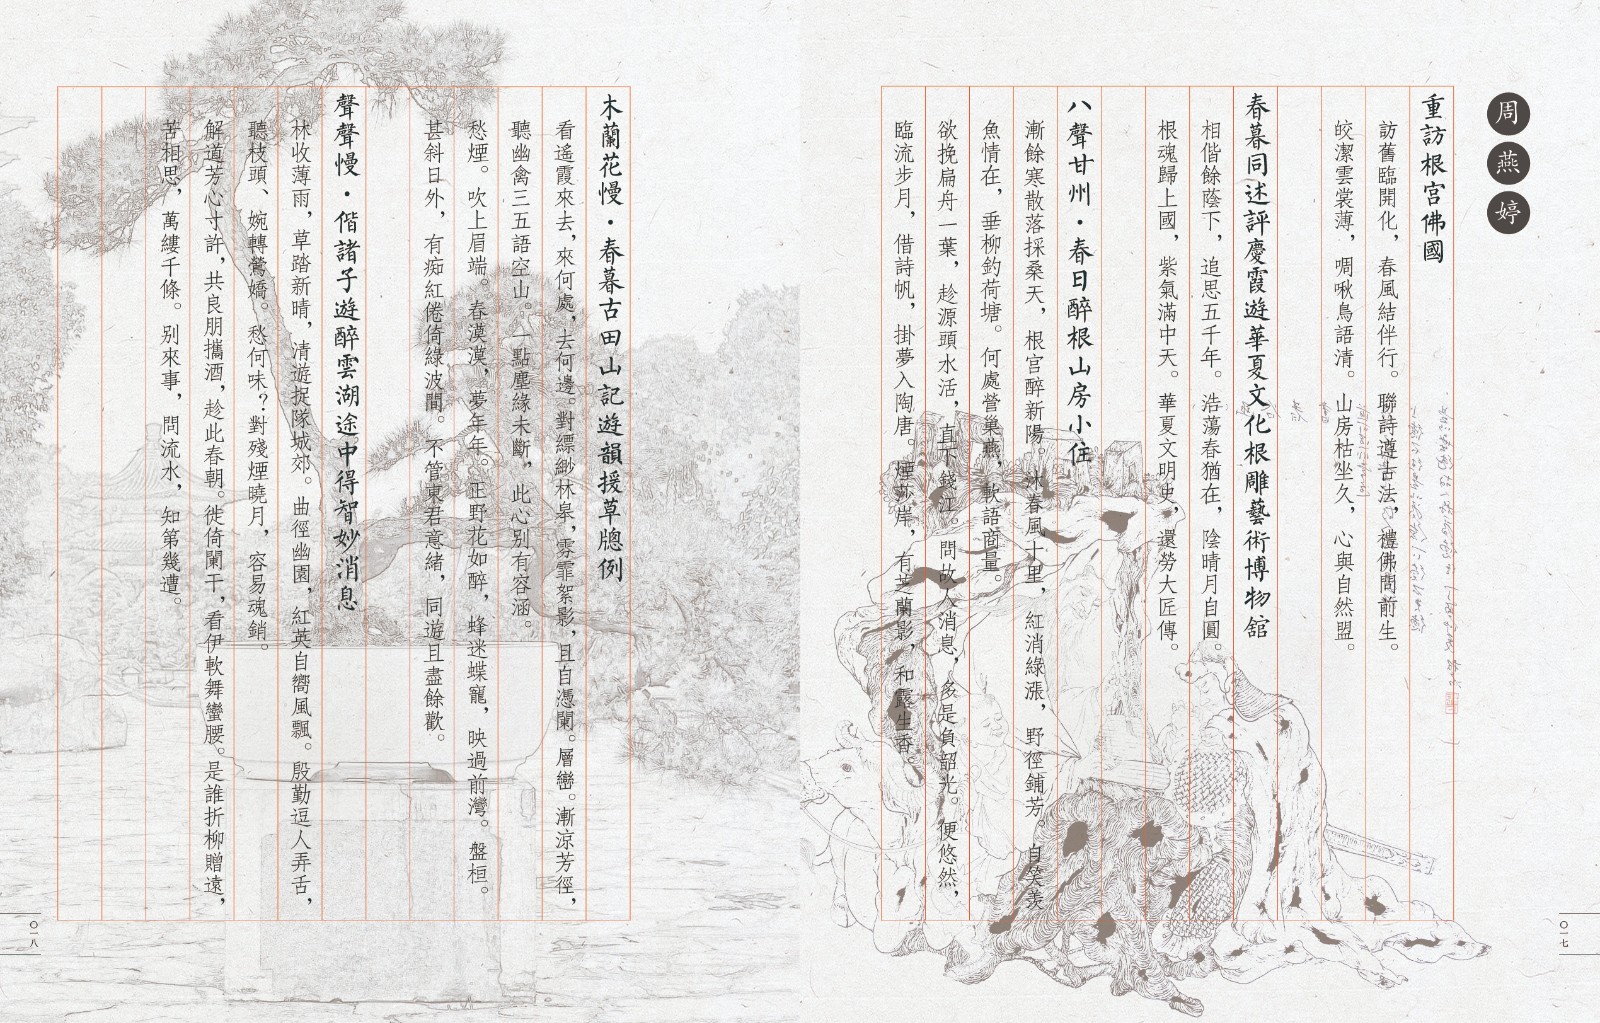 周燕婷
重訪根宮佛國
訪舊臨開化，春風結伴行。聯詩遵古法，禮佛問前生。
皎潔雲裳薄，啁啾鳥語清。山房枯坐久，心與自然盟。
春暮同述評慶霞遊華夏文化根雕藝術博物舘
相偕餘蔭下，追思五千年。浩蕩春猶在，陰晴月自圓。
根魂歸上國，紫氣滿中天。華夏文明史，還勞大匠傳。
八聲甘州·春日醉根山房小住
漸餘寒散落採桑天，根宮醉新陽。沐春風十里，紅消綠漲，野徑鋪芳。自笑羨
魚情在，垂柳釣荷塘。何處營巢燕，軟語商量。
欲挽扁舟一葉，趁源頭水活，直下錢江。問故人消息，多是負韶光。便悠然，
臨流步月，借詩帆，掛夢入陶唐。煙莎岸，有芝蘭影，和露生香。
〇一七
木蘭花慢·春暮古田山記遊韻援草牕例
看遙霞來去，來何處，去何邊。對縹緲林皋，雰霏絮影，且自憑闌。層巒。漸涼芳徑，
聽幽禽三五語空山。一點塵緣未斷，此心別有容涵。
愁煙。吹上眉端。春漠漠，夢年年。正野花如醉，蜂迷蝶寵，映過前灣。盤桓。
甚斜日外，有痴紅倦倚綠波間。不管東君意緒，同遊且盡餘歡。
聲聲慢·偕諸子遊醉雲湖途中得智妙消息
林收薄雨，草踏新晴，清遊捉隊城郊。曲徑幽園，紅英自嚮風飄。殷勤逗人弄舌，
聽枝頭、婉轉鶯嬌。愁何味？對殘煙曉月，容易魂銷。
解道芳心寸許，共良朋攜酒，趁此春朝。徙倚闌干，看伊軟舞蠻腰。是誰折柳贈遠，
苦相思，萬縷千條。別來事，問流水，知第幾遭。
〇一八